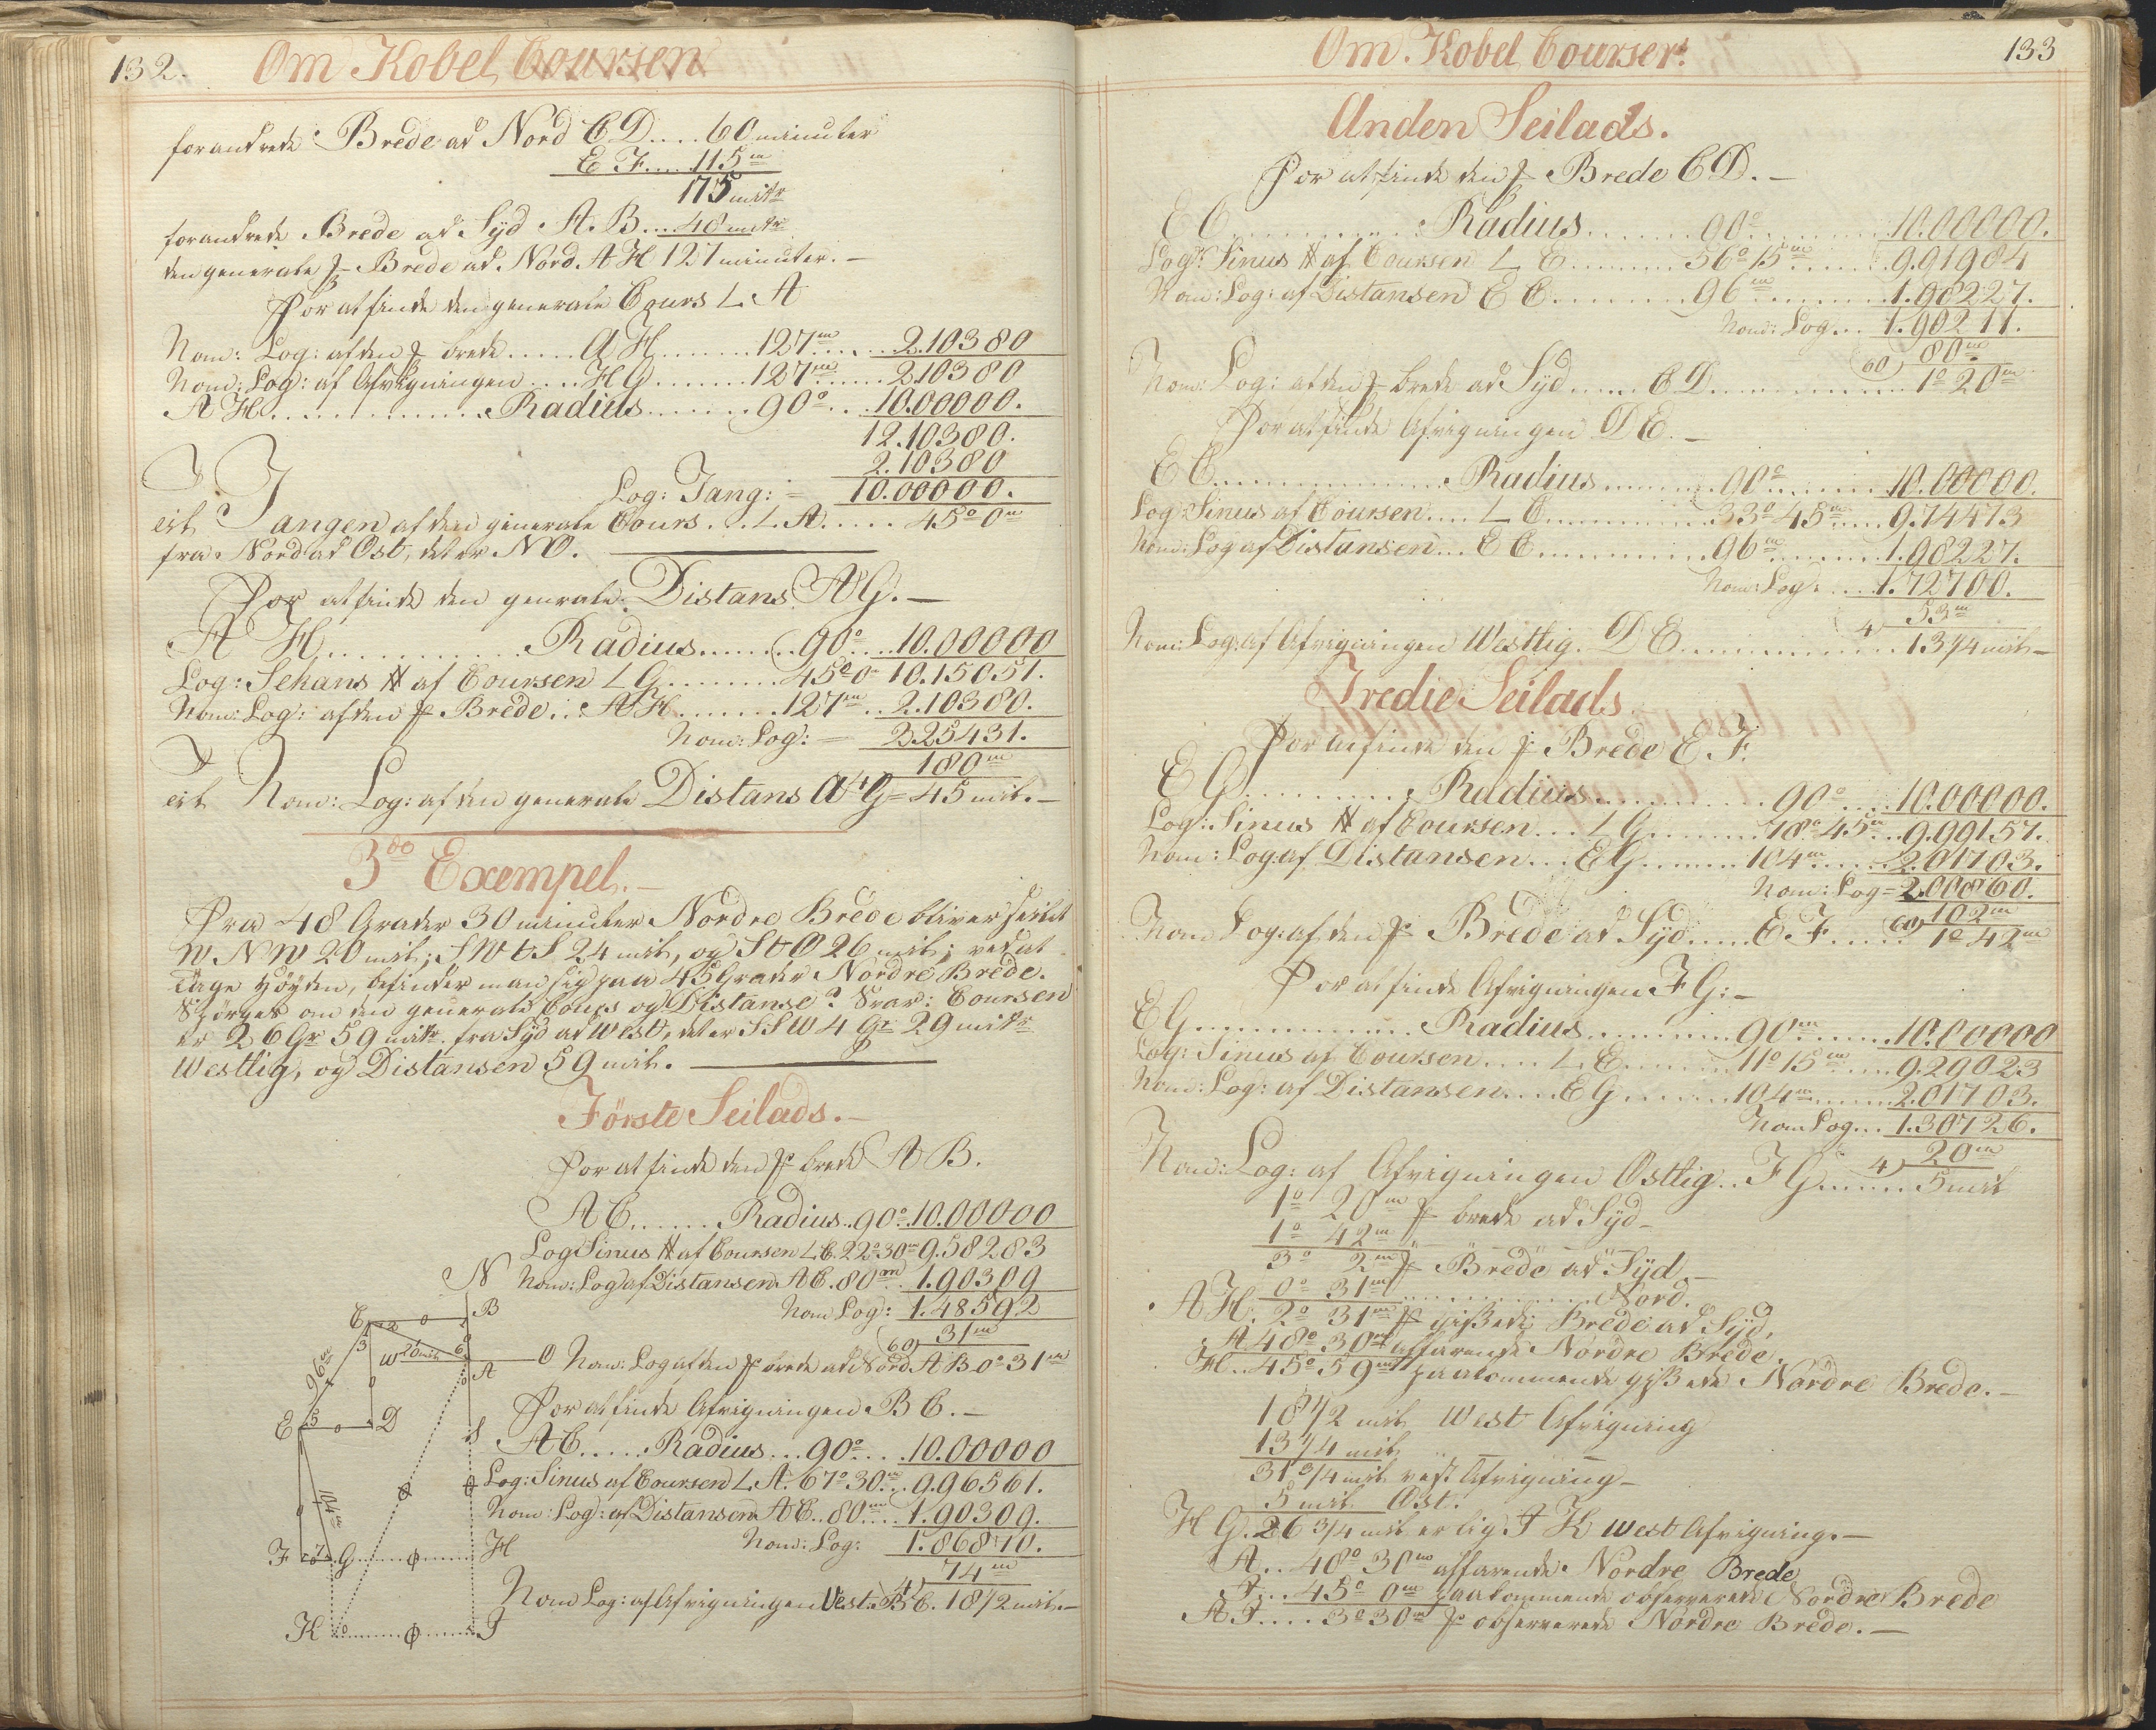 132. Om Kobel Coursen
forandrede Brede ad Nord C D.... 60 minuter
E F..... 115 m
175 mitr
forandrede Brede ad Syd A. B... 48 mitr
den generale f- Brede ad Nord. A H 127 minuter. –
For at finde den generale Cours L. A
Nom: Log: af den f- brede ..... A H ........ 127 m ...... 2.10380
Nom: Log: af Afvigningen .... H G ....... 127 m ...... 2.10380
A H ............... Radius ....... 90° ... 10.00000.
12.10380.
2.10380
Log: Tang: – 10.00000.
er Tangen af den generale Cours ... L. A ..... 45° 0 m
fra Nord ad Ost, det er N O. –
For at finde den genrale Distans A G. –
A H ............ Radius ....... 90° .... 10.00000
Log: Sekans # af Coursen L G ........ 45° 0 m 10.15051.
Nom: Log: af den f- Brede ... A H ....... 127 m .. 2.10380.
Nom: Log: – 2.25431.
180 m
er Nom: Log: af den generale Distans A G = 45 mil. –
3die Exempel. –
Fra 48 Grader 30 minuter Nordre Brede bliver seilet
W N W 20 mil; S W t S 24 mil, og S t O 26 mil; ved at
tage Höyden, befinder man sig paa 45 Grader Nordre Brede.
Spörges om den generale Cours og Distanse? Svar: Coursen
er 26 Gr 59 mitr. fra Syd ad West, det er S S W 4 Gr 29 mitr
Westlig, og Distansen 59 mil. –
Förste Seilads. –
For at finde den f- brede A B.
A C ...... Radius .. 90° .. 10.00000
Log Sinus # af Coursen L C. 22° 30 m 9.58283
Nom: Log af Distansen A C. 80 m .. 1.90309
Nom Log: 1.48592
60) 31 m
Nom: Log af den f- brede ad Nord A B 0° 31 m
For at finde Afvigningen B C. –
A C ..... Radius ... 90° .... 10.00000
Log: Sinus af Coursen L A. 67° 30 m .. 9.96561.
Nom: Log: af Distansen A C .. 80 m .... 1.90309.
Nom: Log: 1.86870.
4) 74 m
Nom Log: af Afvigningen Vest. B C. 18 1/2 mil. –
N
C B
W 20 mil O
A
96 m
E D
S
104 m
F G H
K I
Om. Kobel Courser. 133
Anden Seilads.
For at finde den f- Brede C D. –
E C ............. Radius ....... 90° ......... 10.00000.
Log: Sinus # af Coursen L E ........ 56° 15 m ....... 9.91984
Nom: Log: af Distansen E C ......... 96 m ......... 1.98227.
Nom: Log ... 1.90211.
60) 80 m
Nom: Log: af den f- brede ad Syd ..... C D .............. 1° 20 m
For at finde Afvigningen D E. –
E C ................ Radius ........ 90° ........ 10.00000.
Log: Sinus af Coursen .... L C ........... 33° 45 m ..... 9.74473
Nom: Log af Distansen ... E C ........... 96 m ........ 1.98227.
Nom: Log: .... 1.72700.
4) 53 m
Nom: Log: af Afvigningen Westlig. D E .............. 13 1/4 mil –
Tredie Seilads
For at finde den f- Brede E. F.
E G ........... Radius ............ 90° .... 10.00000.
Log: Sinus # af Coursen ... L G ....... 78° 45 m ... 9.99157.
Nom: Log: af Distansen ... E G ....... 104 m ..... 2.01703.
Nom: Log = 2.00860.
60) 102 m
Nom Log: af den f- Brede ad Syd ..... E. F ...... 1° 42 m
For at finde Afvigningen F G: –
E G .............. Radius .......... 90 m ....... 10.00000
Log: Sinus af Coursen .... L. E ....... 11° 15 m .... 9.29023
Nom: Log: af Distansen .... E G ....... 104 m ........ 2.01703.
Nom Log ... 1.30726.
4) 20 m
Nom: Log: af Afvigningen Ostlig .. F G ...... 5 mil
1° 20 m f- brede ad Syd –
1° 42 m " "
3° 2 m f- Brede ad Syd –
0° 31 m .............. Nord.
A H. 2° 31 m f- gissede Brede ad Syd,
A 48° 30 m affarende Nordre Brede.
H .. 45° 59 m paakommende gissede Nordre Brede. –
18 1/2 mil West Afvigning
13 1/4 mil " – –
31 3/4 mil vest Afvigning –
5 mil Ost.
H G. 26 3/4 mil er lig I K West Afvigning. –
A .. 48° 30 m affarende Nordre Brede
I .. 45° 0 m paakommende observerede Nordre Brede
A I .... 3° 30 m f- observerede Nordre Brede. –